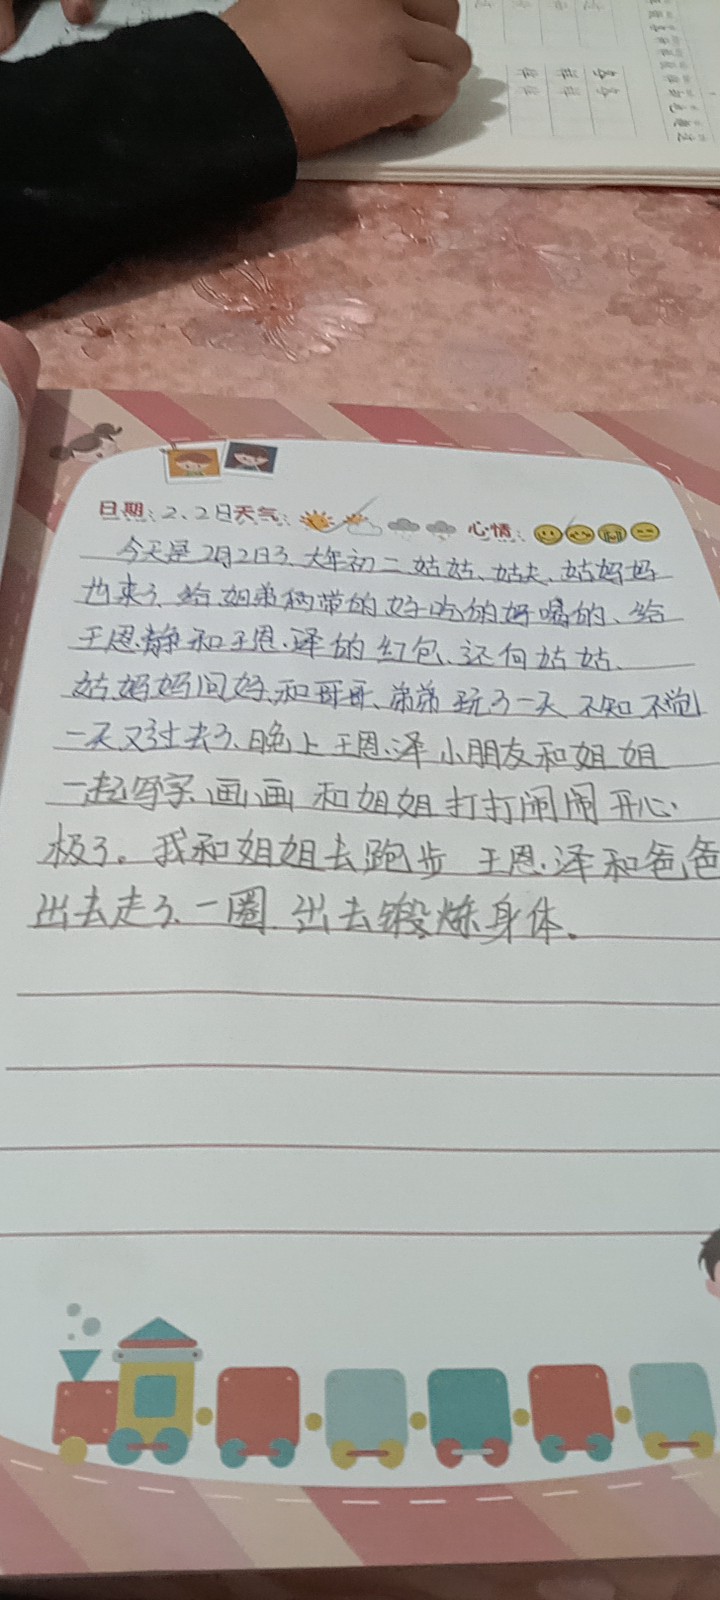 日期：2、2日天气： 心情：
今天是2月2日了、大年初二姑姑、姑夫、姑妈妈
也来了、给姐弟俩带的好吃的好喝的、给
王恩静和王恩泽的红包、还向姑姑、
姑妈妈问好、和哥哥、弟弟玩了一天 不知不觉
一天又过去了、晚上王恩泽小朋友和姐姐
一起写字、画画 和姐姐打打闹闹开心
极了。我和姐姐去跑步 王恩泽和爸爸
出去走了、一圈、出去锻炼身体。